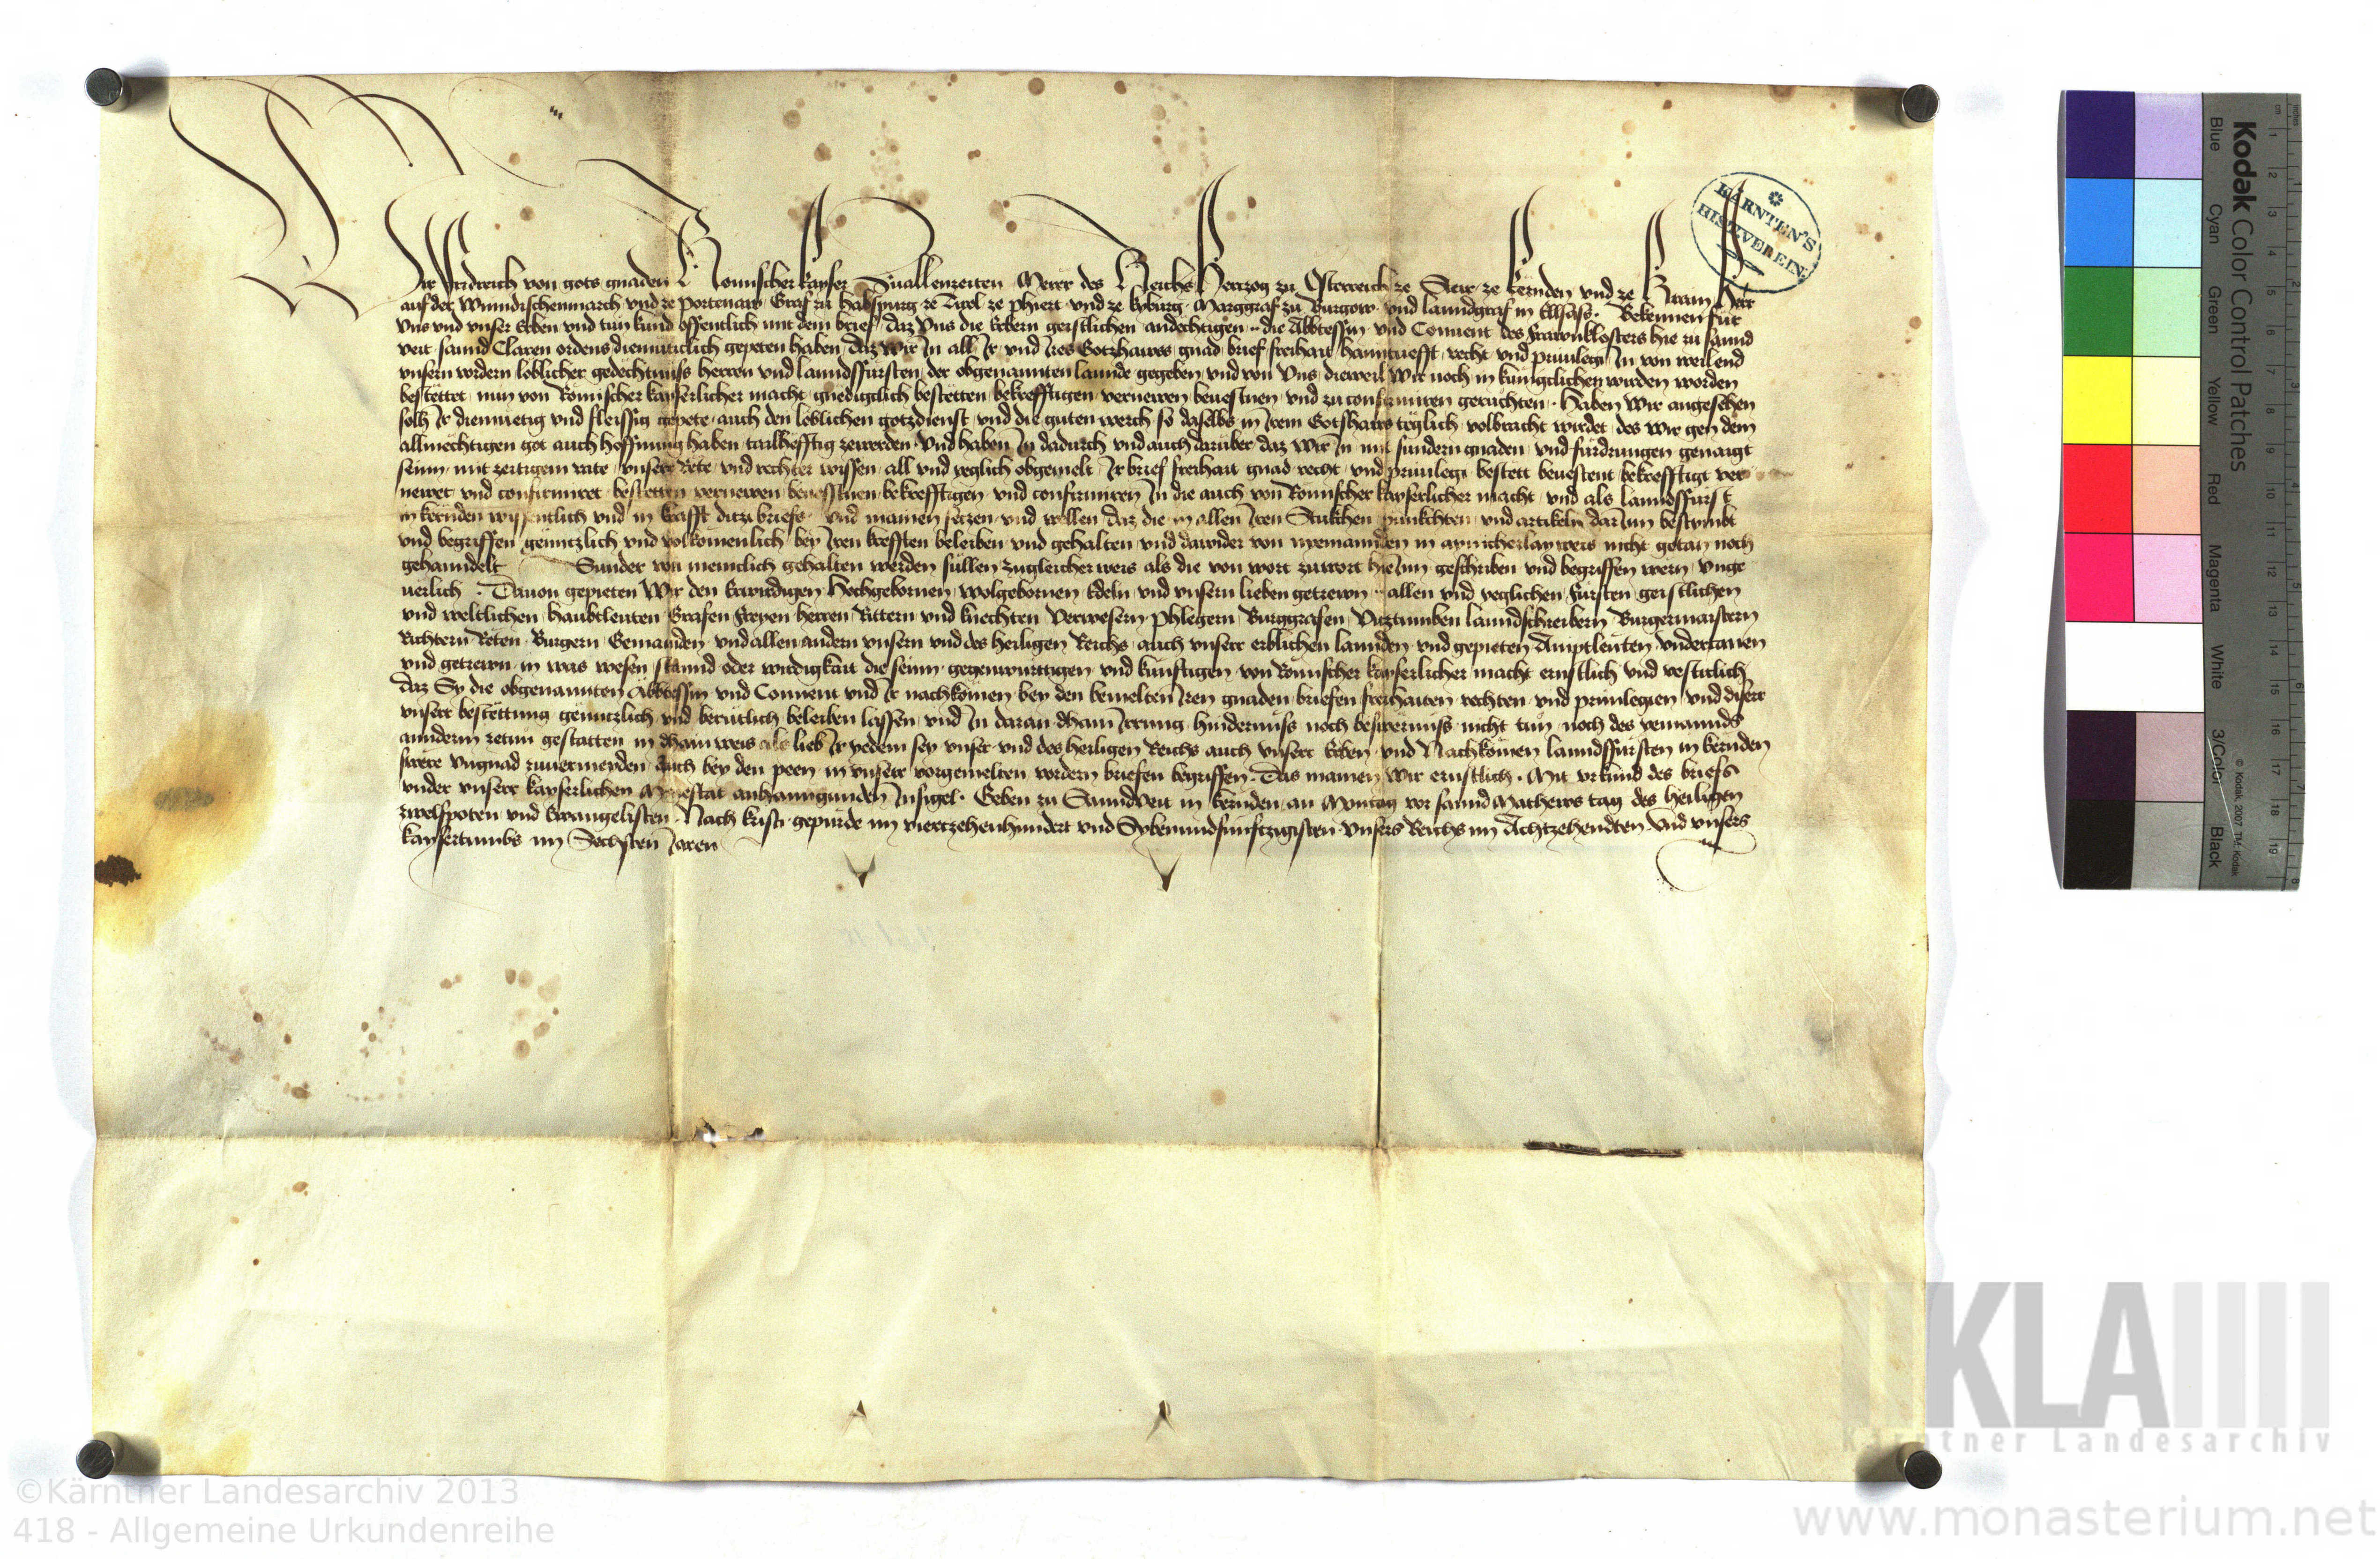 Wir Fridreich von gots gnaden Romischer kayser Zuallenzeiten Merer des Reichs Hertzog zu Österreich ze Steir ze kernden und ze krain Herr
auf der Winndischenmarch und ze Portenaw Graf zu Habspurg ze Tirol ze phiert und ze kyburg Marggraf zu Burgow und lanndgraf in Ellsass. Bekennen fur
uns und unser Erben und tun kund offentlich mit dem brief daz uns die Erbern geistlichen andechtigen .. die Abbtessin und Convent des frawnklosters hie zu sannd
veit sannd Claren ordens diemuticlich gepeten haben daz wir In all Ir und Ires Gotzhauses gnad brief freihait hanntvesst recht und privilegi In von weilend
unsern vordern loblicher gedechtnuss herren und lanndsfursten der obgenannten lannde gegeben und von uns dieweil wir noch in kuniglichen wirden worden
bestettet nun von Romischer kayserlicher macht gnediglich bestetten bekrefftigen vernewen bevestnen und zu confirmiren geruchten. Haben wir angesehen
solh Ir diemuetig und fleissig gepete auch den loblichen gotzdienst und die guten werch so daselbs in Irem Gotshaws teglich volbracht wirdet des wir gen dem
allmechtigen got auch hoffnung haben tailhefftig zewerden Und haben In dadurch und auch daruber daz wir In mit sundern gnaden und furdrungen genaigt
seinn mit zeitigem rate unserr Rete und rechter wissen all und yeglich obgemelt Ir brief freihait gnad recht und privilegi bestett bevestent bekrefftigt ver
newet und confirmiret bestetten vernewen bevesstnen bekrefftigen und confirmiren In die auch von Romischer kayserlicher macht und als lanndsfürst
in kernden wissentlich und in krafft ditz briefs und mainen setzen und wellen daz die in allen Iren Stukchen punkchten und artikeln darInn bestymbt
und begriffen genntzlich und volkomenlich bey Iren krefften beleiben und gehalten und dawider von nyemannden in aynicherlay weis nicht getan noch
gehanndelt Sunder von menicklich gehalten werden sullen zugleicherweis als die von wort zuwort hieInn geschriben und begriffen wern unge
uerlich . Davon gepieten Wir den Erwirdigen Hochgebornen Wolgebornen Edeln und unsern lieben getrewn .. allen und yeglichen fursten geistlichen
und weltlichen haubtleuten Grafen freyen herren Rittern und knechten Verwesern phlegern Burggrafen Vitztumben lanndschreibern Burgermaistern
Richtern Reten Burgern Gemainden und allen andern unsern und des heiligen Reichs auch unserr erblichen lannden und gepieten Amptleuten undertanen
und getrewn in was wesen stannd oder wirdigkait die seinn gegenwurttigen und kunftigen von Romischer kayserlicher macht ernstlich und vestiklich
daz Sy die obgenannten Abbtessin und Convent und Ir nachkomen bey den bemelten Iren gnaden briefen freihaiten rechten und privilegien und diserr
unserr bestettung genntzlich und berutlich beleiben lassen und In daran dhain Irrung hindernuss noch beswernuss nicht tun noch des yemannds
anndern zetun gestatten in dhain weis als lieb Ir yedem sey unser und des heiligen Reichs auch unserr Erben und Nachkomen lanndsfursten in kernden
swere ungnad zuvermeyden Auch bey den peen in unserr vorgemelten vordern briefen begriffen. Das mainen wir ernstlich . Mit urkund des briefs
under unserr kayserlichen Maiestat anhanngunden Insigel . Geben zu Sanndveit in kernden an Montag vor sannd Mathews tag des heiligen
zwelfpoten und Ewangelisten . Nach kristi gepurde im viertzehenhundert und Sybenundfunftzigisten Unsers Reichs im Achtzehendten Und unsers
kaysertumbs im Sechsten Jaren
KÄRNTEN'S
HIST. VEREIN.
Kodak Color Control Patches
Blue Cyan Green Yellow Red Magenta White 3/Color Black
© Kodak, 2007 TM: Kodak
inches 1 2 3 4 5 6 7 8
cm 1 2 3 4 5 6 7 8 9 10 11 12 13 14 15 16 17 18 19
KLA
Kärntner Landesarchiv
©Kärntner Landesarchiv 2013
418 - Allgemeine Urkundenreihe
www.monasterium.net